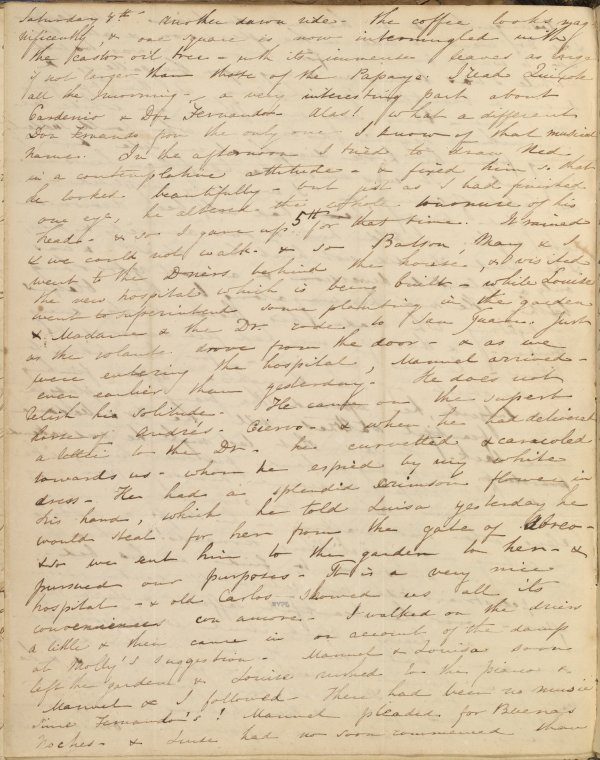 Saturday 4th Another dawn ride - the coffee looks mag
nificently, & one square is now intermingled with
the castor oil tree - with its immense leaves as large
if not larger than those of the Papaya. I read Quixote
all the morning - a very interesting part about
Cardenio & Don Fernando - Alas! what a different
Don Fernando from the only one I know of that musical
name. In the afternoon I tried to draw Ned
in a contemplative attitude - & fixed him so that
he looked beautifully - but just as I had finished
one eye, he altered the whole of his
head - & so I gave up 5th for that time. It rained
& we could not walk - & so Batson, Mary & I
went to the Driers behind the house, & visited
the new hospital which is being built - while Louise
went to superintend some planting in the garden
& Madame & the Dr. rode to San Juan. Just
as the volante drove from the door - & as we
were entering the hospital, Manuel arrived -
even earlier than yesterday. He does not
relish his solitude. He came on the superb
horse of André's Ciervo - & when he had delivered
a letter to the Dr. he curvetted & caracoled
towards us - whom he espied by my white
dress - He had a splendid crimson flower in
his hand, which he told Luisa yesterday he
would steal for her from the gate of Abreo -
& so we sent him to the garden to her - &
pursued our purposes - It is a very nice
hospital - & old Carlos showed us all its
conveniences con amore - I walked on the driers
a little & then came in on account of the damp
at Molly's suggestion - Manuel & Louisa soon
left the garden & Louise rushed to the piano &
Manuel & I followed - There had been no music
since Fernando's! Manuel pleaded for Buenas
Noches - & Luise had no soon commenced than